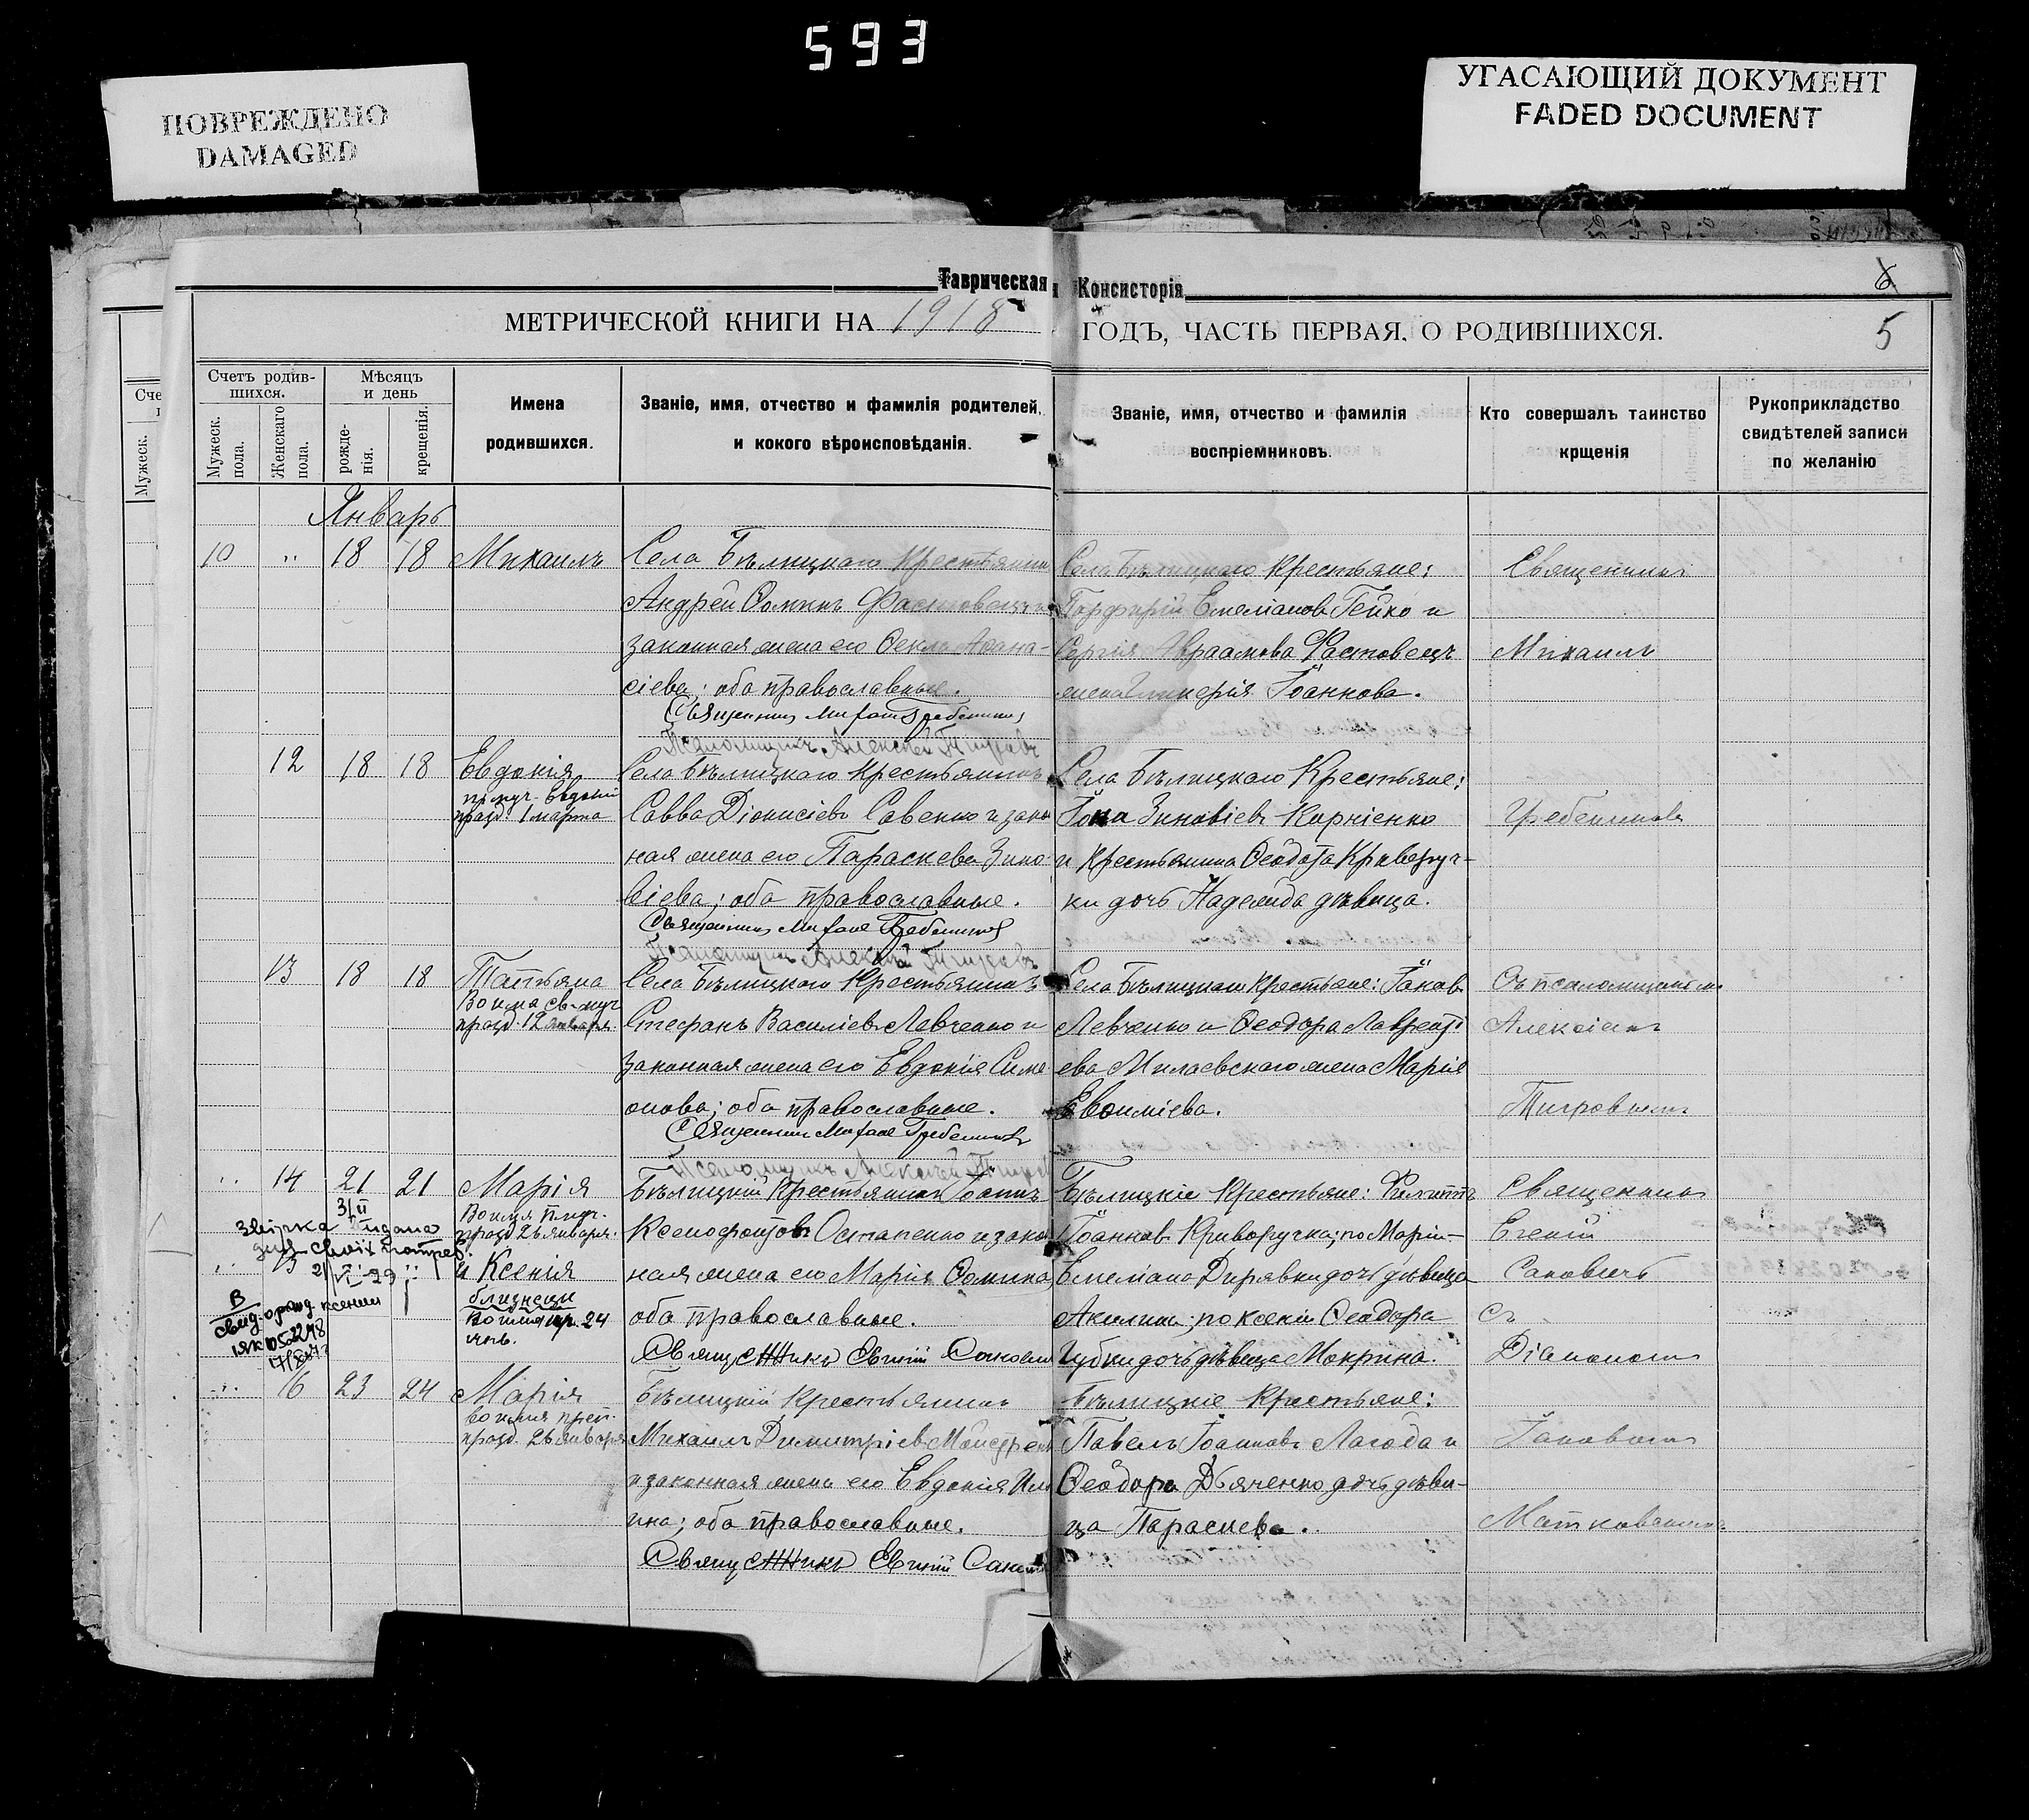 593
ПОВРЕЖДЕНО
DAMAGED
УГАСАЮЩИЙ ДОКУМЕНТ
FADED DOCUMENT
Таврическая
Консисторія
6
МЕТРИЧЕСКОЙ КНИГИ НА 1918
ГОДЪ, ЧАСТЬ ПЕРВАЯ, О РОДИВШИХСЯ.
5
Счетъ родив-
шихся.
Мужеск.
пола.
Женскаго
пола.
Мѣсяцъ
и день
рожде-
нія.
крещенія.
Имена
родившихся.
Званіе, имя, отчество и фамилія родителей,
и кокого вѣроисповѣданія.
Званіе, имя, отчество и фамилія
воспріемниковъ.
Кто совершалъ таинство
крщенія
Рукоприкладство
свидѣтелей записи
по желанію
Январь
10 18 18 Михаилъ
Села Бѣлицкаго крестьянин
Андрей Ѳоминъ Фастовецъ и
законная жена его Ѳекла Аѳана-
сіева; оба православные.
Священникъ Михаилъ Гребенниковъ
Псаломщикъ Алексѣй Тигровъ
Села Бѣлицкаго крестьяне:
Порфирій Емеліановъ Гейко и
Сергія Авраамова Фастовецъ
жена Гликерія Іоаннова.
Священникъ
Михаилъ
12 18 18 Евдокія
прмуч. Евдокіи
празд. 1 марта
Села Бѣлицкаго крестьянинъ
Савва Діонисіевъ Савенко и закон
ная жена его Параскева Зино-
віева; оба православные.
Священникъ Михаилъ Гребенниковъ
Псаломщикъ Алексѣй Тигровъ
Села Бѣлицкаго Крестьяне:
Іона Зиновіевъ Корніенко
и крестьянина Ѳеодота Криворуч-
ки дочь Надежда дѣвица.
Гребенниковъ
13 18 18 Татьяна
Во имя св. муч
празд. 12 января.
Села Бѣлицкаго крестьянинъ
Стефанъ Василіевъ Левченко и
законная жена его Евдокія Симе
онова; оба православные.
Священникъ Михаилъ Гребенниковъ
Псаломщикъ Алексѣй Тигровъ
Села Бѣлицкаго крестьяне: Іаковъ
Левченко и Ѳеодора Лаврентi
ева Милаевскаго жена Марія
Евѳиміева.
Съ псаломщикомъ
Алексіемъ
Тигровымъ
14 21 21 Марія
3/II
Во имя
празд 26 января.
15 и Ксенія
близнецы
Во имя пр. 24
янв.
своіх потреб
В
свид. о рожд. Ксении
Бѣлицкій крестьянинъ Іоаннъ
Ксенофонтовъ Остапенко и закон
ная жена его Марія Ѳомина,
оба православные.
Священникъ Евгеній
Бѣлицкіе крестьяне: Филиппъ
Іоанновъ Криворучка; по Маріи-
Емеліана Дирявки дочь дѣвица
Акилина; по Ксеніи Ѳеодора
Губки дочь дѣвица Мокрина.
Священникъ
Евгеній
Саковичъ
съ
Діакономъ
16 23 24 Марія
во имя преп.
празд. 26 января
Бѣлицкій крестьянинъ
Михаилъ Димитріевъ
и законная жена его Евдокія Иль
ина; оба православные.
Священникъ Евгеній
Бѣлицкіе крестьяне:
Павелъ Іоанновъ Лагода и
Ѳеодора Дьяченко дочь дѣви-
ца Параскева.
Іаковомъ